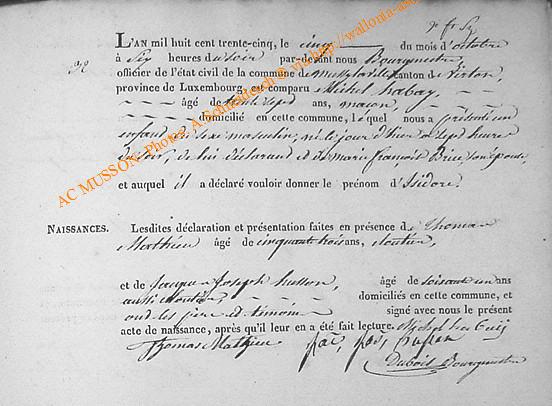 L'AN mil huit cent trente-cinq, le cinq du mois d'octobre
à six heures du soir par-devant nous Bourgmestre,
officier de l'état civil de la commune de canton de Virton,
province de Luxembourg, est comparu Michel habay,
âgé de trente sept ans, maçon,
domicilié en cette commune, lequel nous a présenté un
enfant du sexe masculin, né le jour d'hier a sept heures
du soir, de lui déclarant et de marie françoise son épouse
et auquel il a déclaré vouloir donner le prénom d'Isidore.
NAISSANCES. Lesdites déclaration et présentation faites en présence de Thomas
Mathieu âgé de cinquante trois ans, cloutier,
et de Jacques Joseph husson, âgé de soixante un ans
aussi cloutier, domiciliés en cette commune, et
ont les père et témoins signé avec nous le présent
acte de naissance, après qu'il leur en a été fait lecture.
Thomas Mathieu
Dubois Bourgmestre
AC MUSSON, Photos: A.Schleidesch @